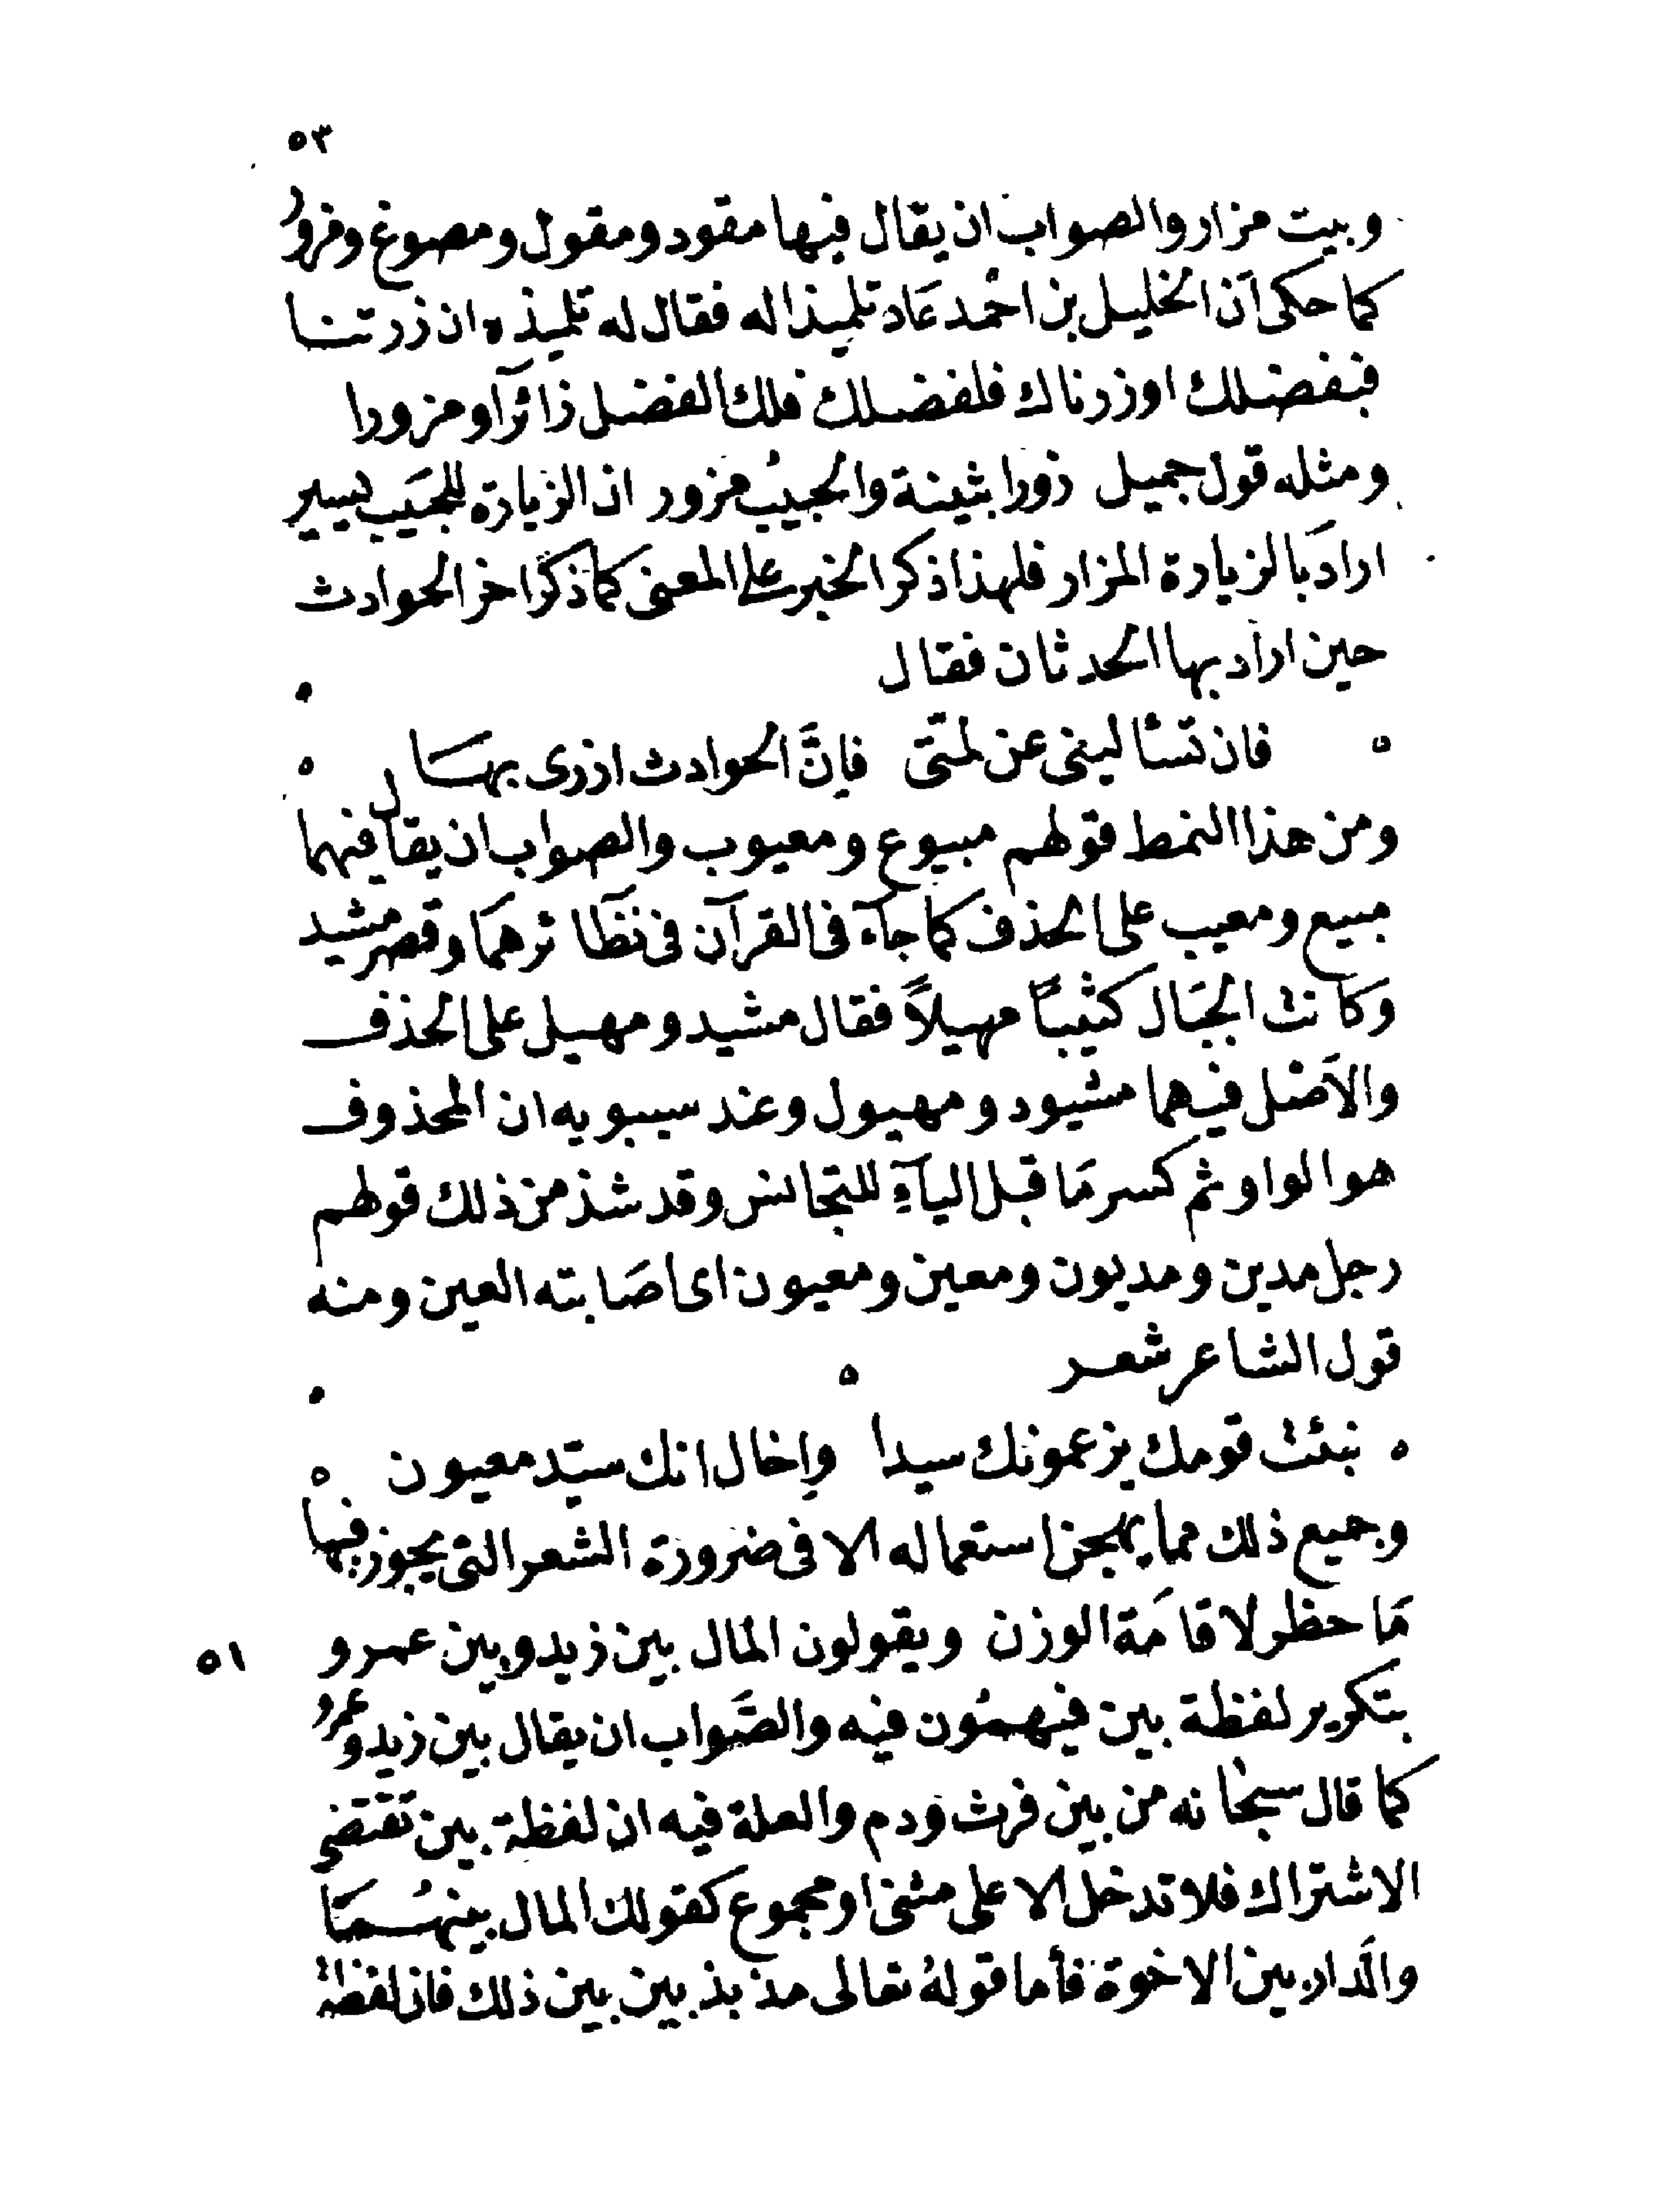 ٥٣
وبيت مزار والصواب ان يقال فيها مقود ومقول ومصوغ ومزور
كما حكى أن الخليل بن احمد عَاد تلميذا له فقال له تلميذه ان زرتنا
فبفضلك او زرناك فلفضلك فلك الفضل زائرًا ومزورا
ومثله قول جميل زورا بثينة والحبيبُ مزور ان الزيارة للحبَيب يسير
ارادَ بالزيارة المزار فلهذا ذكر الخبر على المعنى كما ذكر اخر الحوادث
حين اراد بها الحدثان فقال
فان تسئا لينى عن لمتى فإنَّ الحوادث ازرى بهَا
ومن هذا النمط قولهم مبيوع ومعيوب والصواب ان يقال فيهما
مبيع ومعيب على الحذف كما جآء فى القرآن فى نظَائرهمَا وقصر مشيد
وكَانت الجبَال كثيبًا مهيلاً فقال مشيد ومهيل على الحذف
والاصَل فيهما مشيود ومهيول وعند سيبويه ان المحذوف
هو الواو ثم كسر مَا قبل اليآءِ للتجانس وقد شذ من ذلك قولهم
رجل مدين ومديون ومعين ومعيون اى اصَابته العين ومنه
قول الشاعر شعر
نبئت قومك يزعمونك سيدا وإخال انك سيّد معيون
وجميع ذلك مما يهجن استعماله الا فى ضرورة الشعر التى يجوز فيها
مَا حظر لاقامَة الوزن ويقولون المال بين زيد وبين عمرو
٥١
بتكرير لفظة بين فيهمُون فيه والصَّواب ان يقال بين زيد وعمرو
كما قال سبحانه من بين فرث ودم والعلة فيه ان لفظة بين تقتضى
الاشتراك فلا تدخل الا على مثنى او مجموع كقولك المال بينهُمَا
والدار بين الاخوة فأما قولهُ تعالى مذبذبين بين ذلك فان لفظةُ